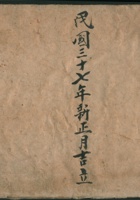 民國三十七年新正月書立